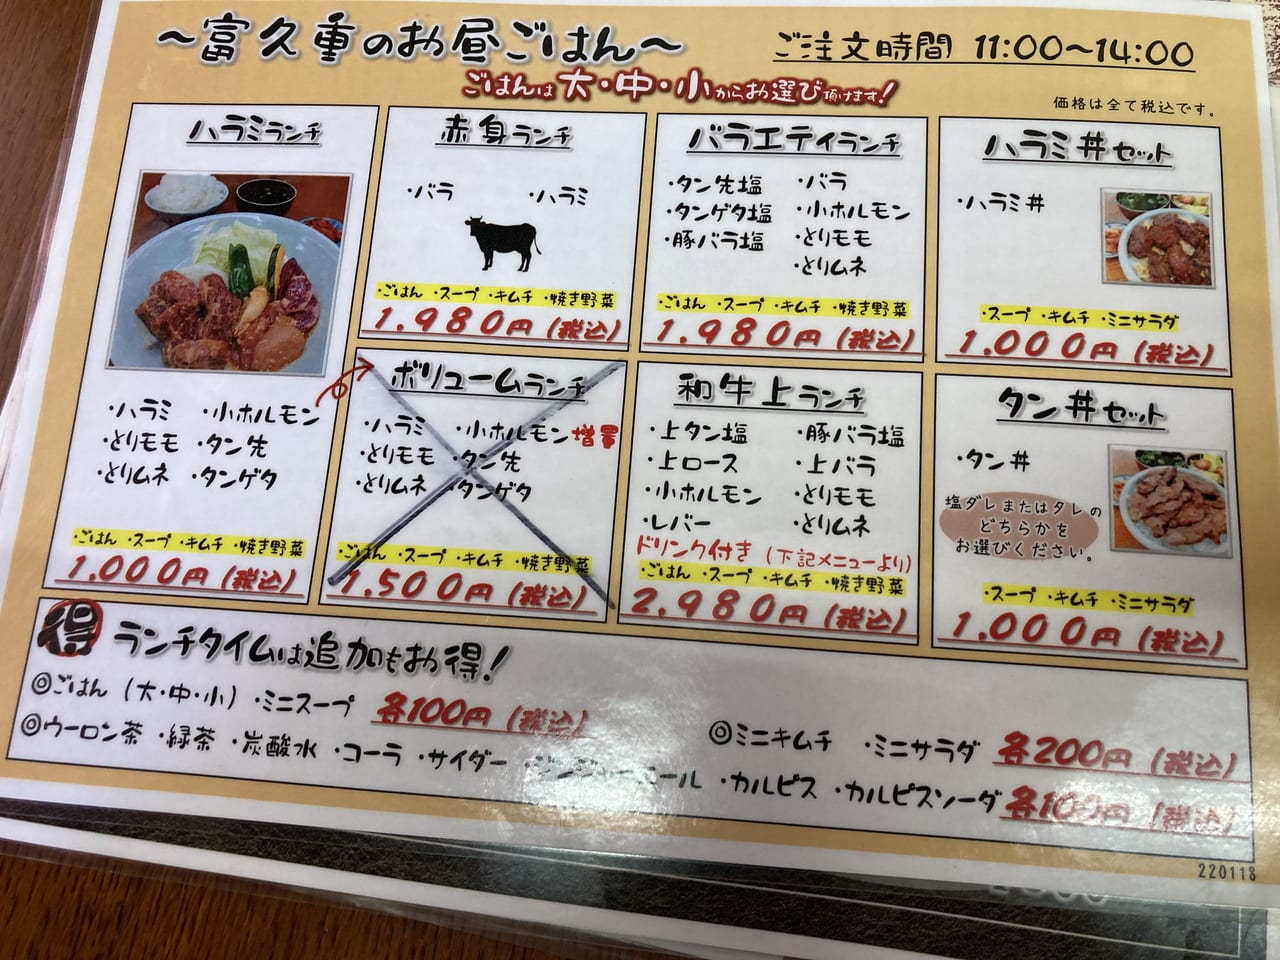 ～富久重のお昼ごはん～
ご注文時間 11:00～14:00
ごはんは大・中・小からお選び頂けます!
価格は全て税込です。
ハラミランチ
・ハラミ ・小ホルモン
・とりモモ ・タン先
・とりムネ ・タンゲタ
・ごはん ・スープ ・キムチ ・焼き野菜
1.000円(税込)
赤身ランチ
・バラ ・ハラミ
・ごはん ・スープ ・キムチ ・焼き野菜
1.980円(税込)
バラエティランチ
・タン先塩 ・バラ
・タンゲタ塩 ・小ホルモン
・豚バラ塩 ・とりモモ
・とりムネ
・ごはん ・スープ ・キムチ ・焼き野菜
1.980円(税込)
ハラミ丼セット
・ハラミ丼
・スープ ・キムチ ・ミニサラダ
1.000円(税込)
ボリュームランチ
・ハラミ ・小ホルモン増量
・とりモモ ・タン先
・とりムネ ・タンゲタ
・ごはん ・スープ ・キムチ ・焼き野菜
1.500円(税込)
和牛上ランチ
・上タン塩 ・豚バラ塩
・上ロース ・上バラ
・小ホルモン ・とりモモ
・レバー ・とりムネ
ドリンク付き (下記メニューより)
・ごはん ・スープ ・キムチ ・焼き野菜
2.980円(税込)
タン丼セット
・タン丼
塩ダレまたはタレの
どちらかを
お選びください。
・スープ ・キムチ ・ミニサラダ
1.000円(税込)
得 ランチタイムは追加もお得!
◎ごはん (大・中・小) ・ミニスープ 各100円(税込)
◎ミニキムチ ・ミニサラダ 各200円(税込)
◎ウーロン茶 ・緑茶 ・炭酸水 ・コーラ ・サイダー ・ジンジャーエール ・カルピス ・カルピスソーダ 各100円(税込)
220118